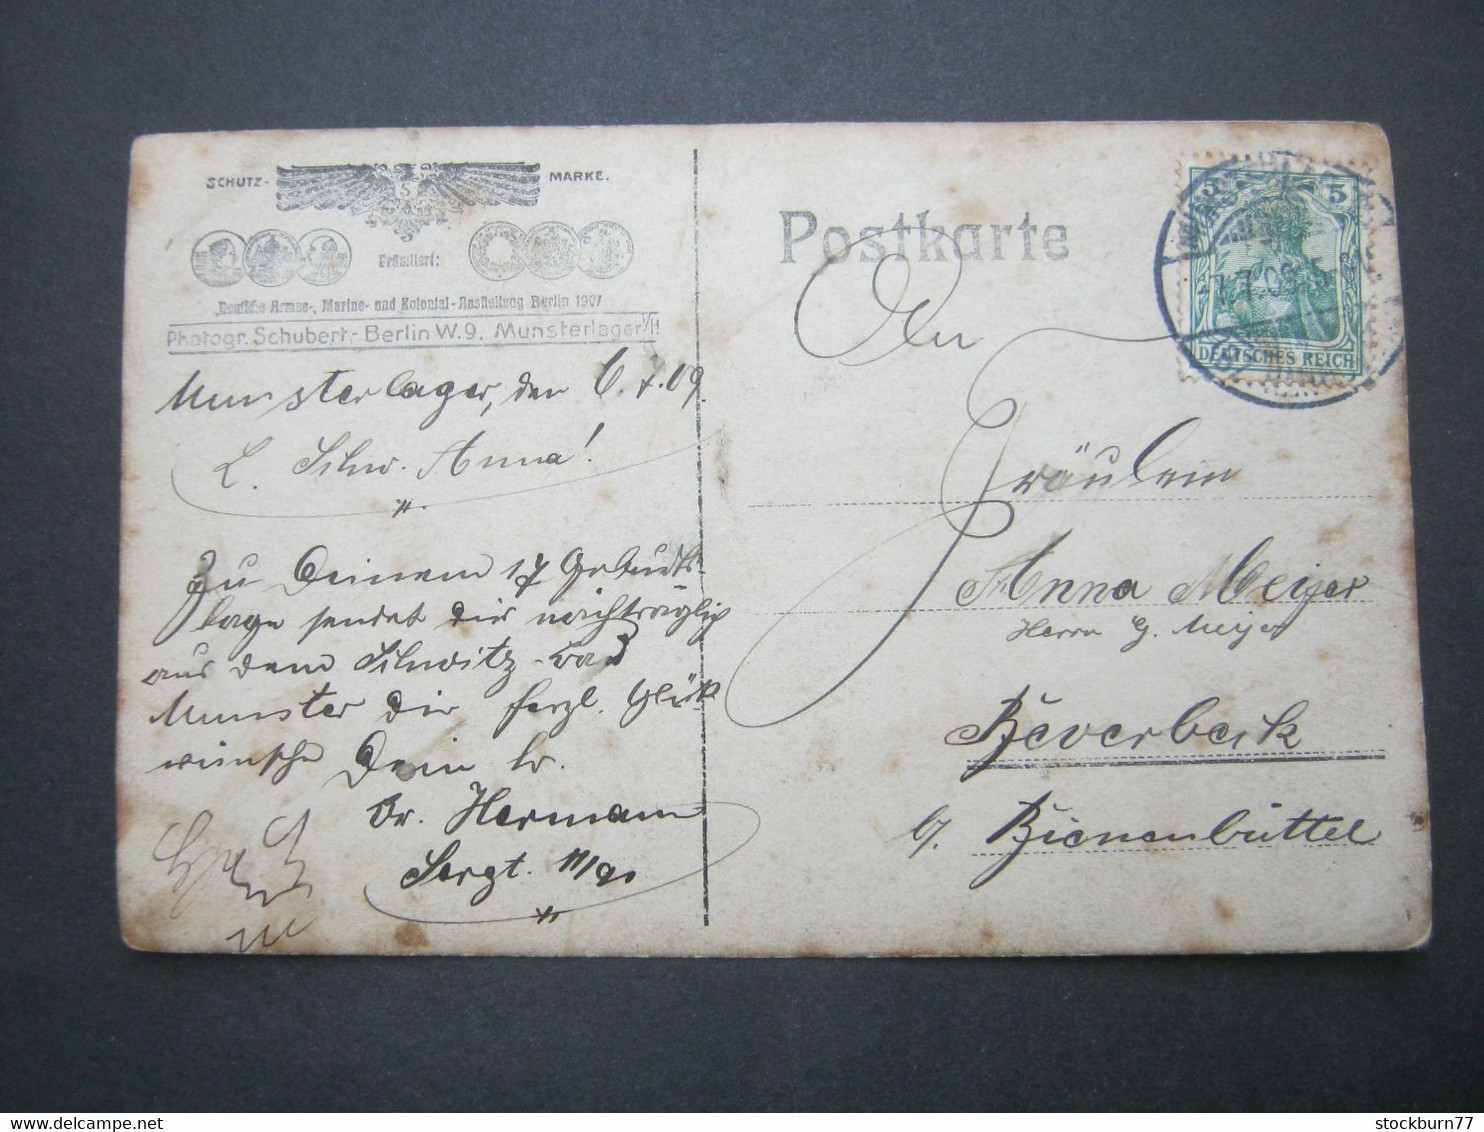 SCHUTZ- MARKE.
Prämiiert:
Deutsche Armee-, Marine- und Kolonial-Ausstellung Berlin 1907
Photogr. Schubert,- Berlin W.9. Munsterlager i/H
Munsterlager, den 6.7.09.
L. Schw. Anna!
Zu Deinem 17 Geburts-
tage sendet dir nachträglich
aus dem Schwitz-Bad
Munster dir herzl. Glück
wünsche Dein lb.
Br. Hermann
Sergt.
Postkarte
5
DEUTSCHES REICH
7.09. 5
An
Fräulein
Anna Meijer
Herrn G. Meyer
Beverbeck
b/. Bienenbüttel
stockburn77